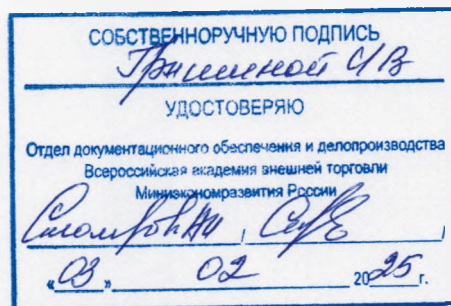 СОБСТВЕННОРУЧНУЮ ПОДПИСЬ
Гришиной И В
УДОСТОВЕРЯЮ
Отдел документационного обеспечения и делопроизводства
Всероссийская академия внешней торговли
Минэкономразвития России
«03» 02 2025 г.